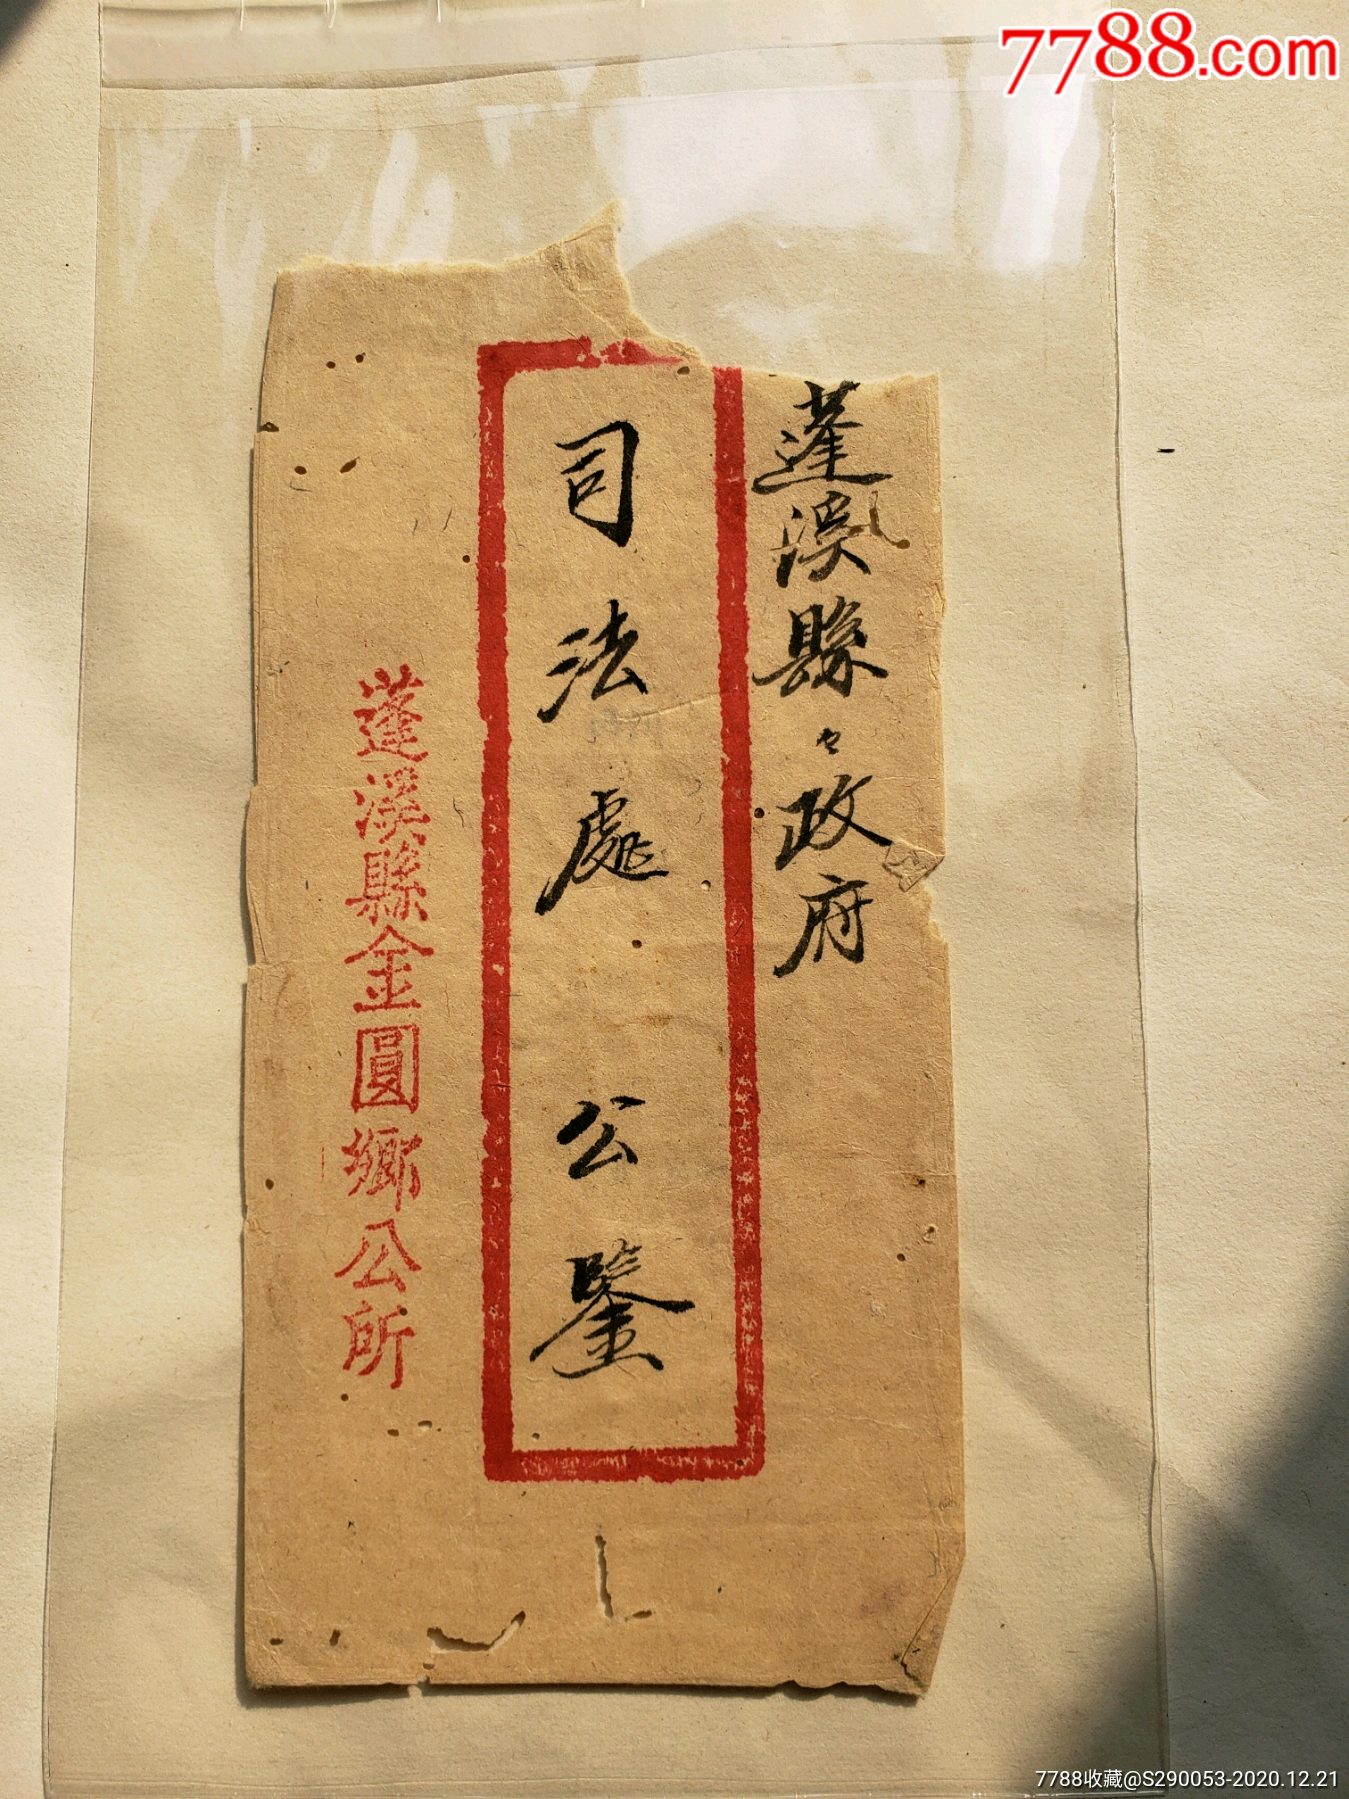 7788.com
蓬溪縣々政府
司法處公鑒
蓬溪縣金圓鄉公所
7788收藏@S290053-2020.12.21